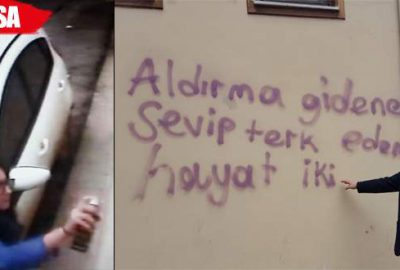 SA
Aldırma gidene
Sevip terk eden
hayat iki